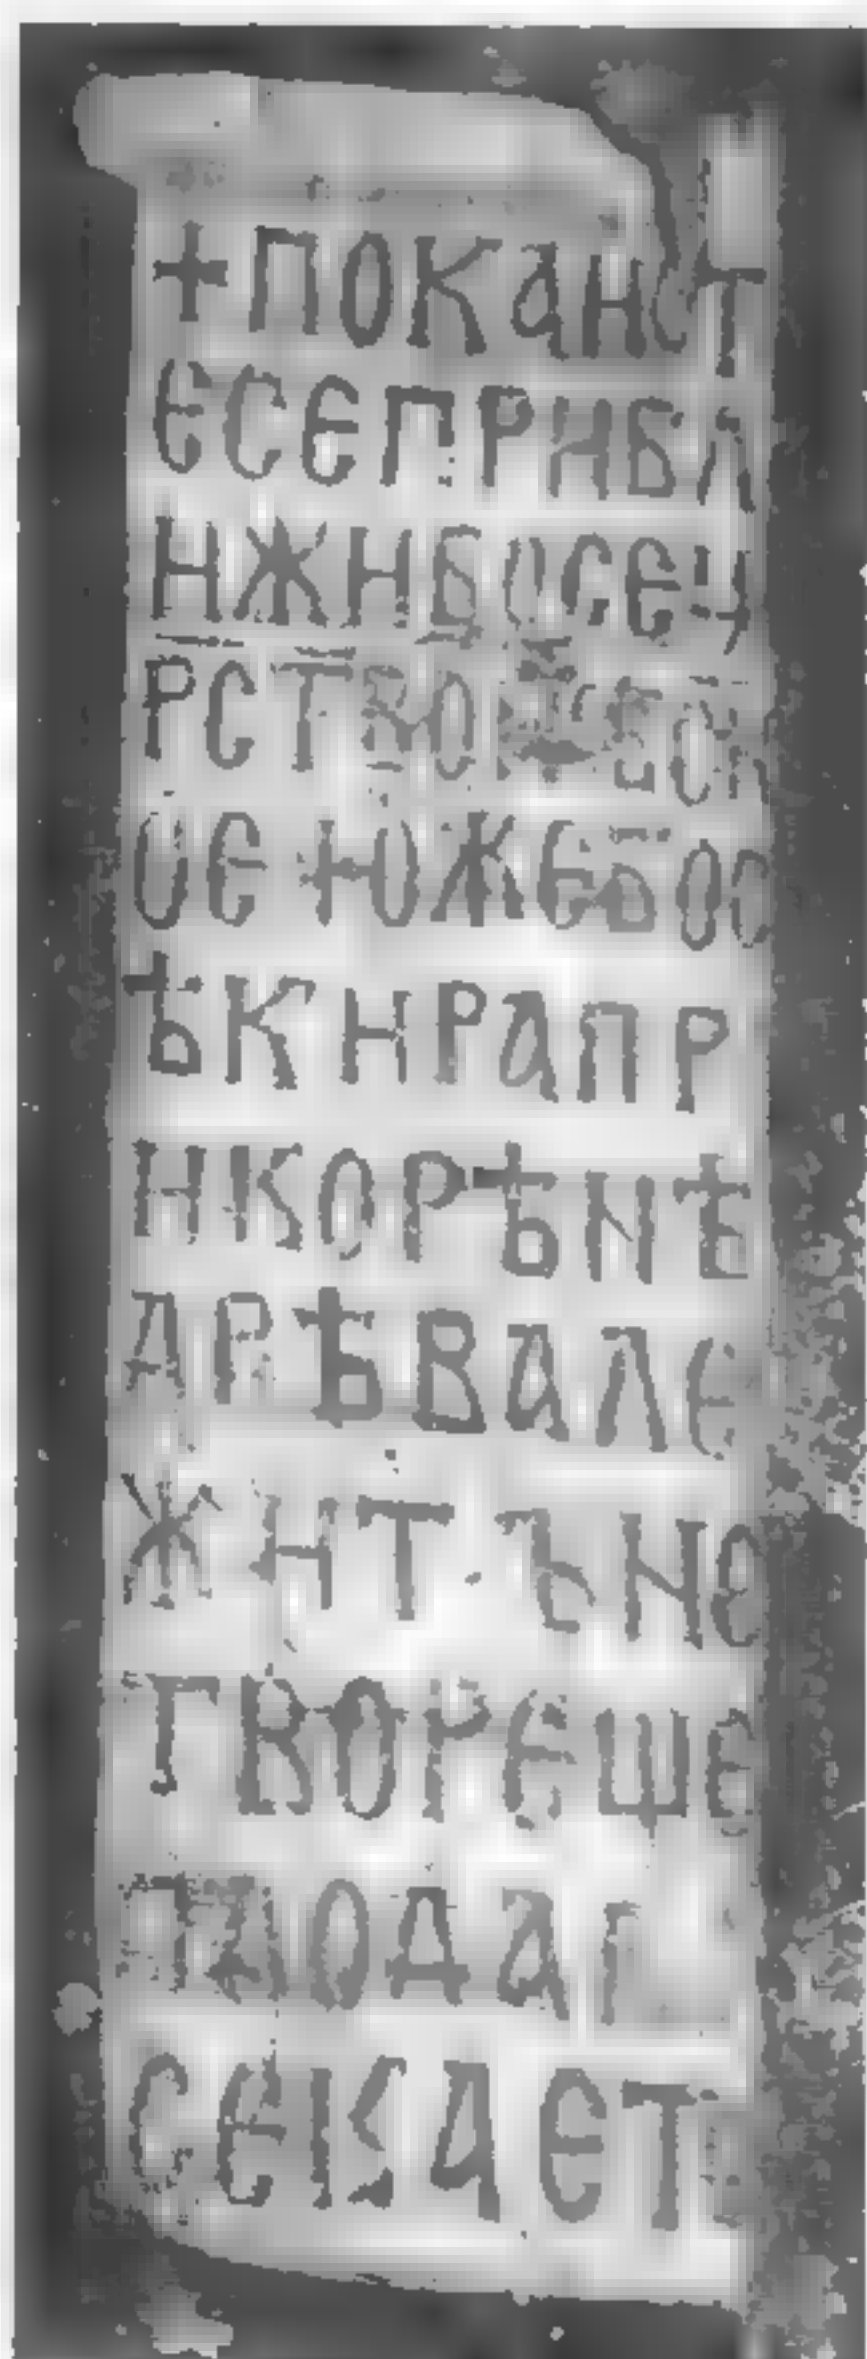 +ПОКАИСТ
ЕСЕПРИБЛ
ИЖИБОСЕЦ
РСТВО НЕБСК
ОЕ ЮЖЕБОС
ѢКИРАПР
ИКОРѢНѢ
ДРѢВАЛЕ
ЖИТ·ЪНЕ
ТВОРЕЩЕ
ПЛОДАГ
СЕКАЕТ